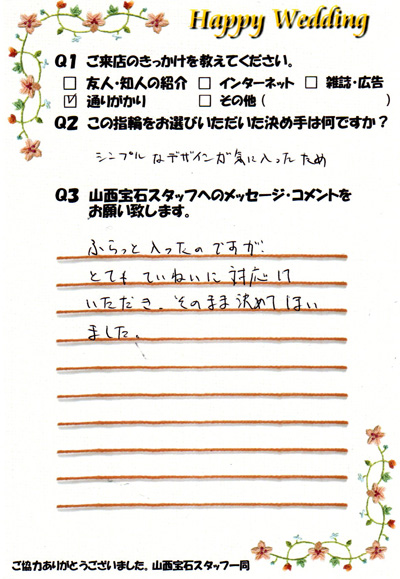 Happy Wedding
Q1 ご来店のきっかけを教えてください。
□ 友人・知人の紹介 □ インターネット □ 雑誌・広告
☑ 通りがかり □ その他 ( )
Q2 この指輪をお選びいただいた決め手は何ですか？
シンプルなデザインが気に入ったため
Q3 山西宝石スタッフへのメッセージ・コメントを
お願い致します。
ふらっと入ったのですが、
とてもていねいに対応して
いただき、そのまま決めてしまい
ました。
ご協力ありがとうございました。山西宝石スタッフ一同